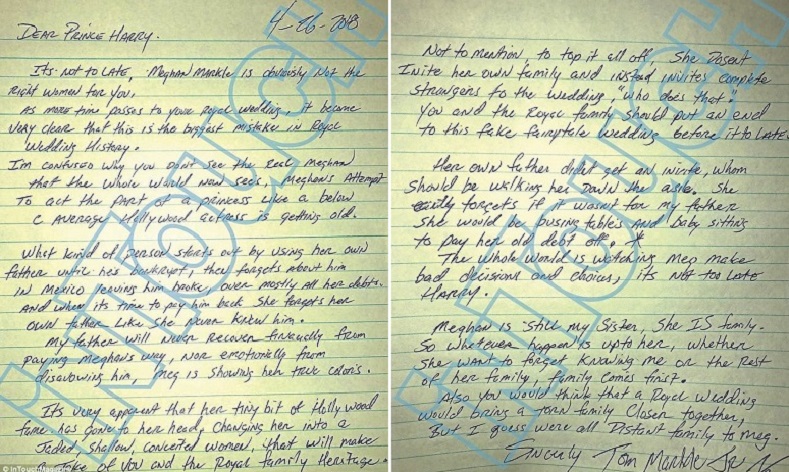 4-26-2018
Dear Prince Harry.
Its not to late, Meghan Markle is obviously not the
right women for you,
As more time passes to your Royal Wedding, it became
very clear that this is the biggest mistake in Royal
Wedding History.
Im confused why you don't see the real Meghan
that the whole world now sees, Meghans Attempt
To act the part of a princess like a below
C average Hollywood actress is getting old.
What kind of person starts out by using her own
father until hes bankrupt, then forgets about him
in Mexico leaving him broke, over mostly all her debts.
And when its time to pay him back She forgets her
own father like she never knew him.
My father will never recover financially from
paying Meghans way, nor emotionally from
disavowing him, Meg is showing her true colors.
Its very apparent that her tiny bit of Hollywood
fame has gone to her head, changing her into a
Jaded, Shallow, conceited women, that will make
of you and the Royal family Heritage.
Not to mention, to top it all off, She dosent
Invite her own family and instead invites complete
strangers to the wedding, "who does that"
You and the Royal family should put an end
to this fake fairytale wedding before it to late.
Her own father didnt get an invite, whom
should be walking her down the aisle. She
forgets if it wasnt for my father
she would be busing tables and baby sitting
to pay her old debt off.
The whole world is watching Meg make
bad decisions and choices, its not too late
Harry.
Meghan is still my Sister, She IS family.
So whatever happen is up to her, whether
She want to forget knowing me or the rest
of her family, family comes first.
Also you would think that a Royal Wedding
would bring a torn family closer together,
But I guess were all Distant family to Meg.
Sincerly Tom Markle Jr
© InTouch/Magazine
InTouch
InTouch